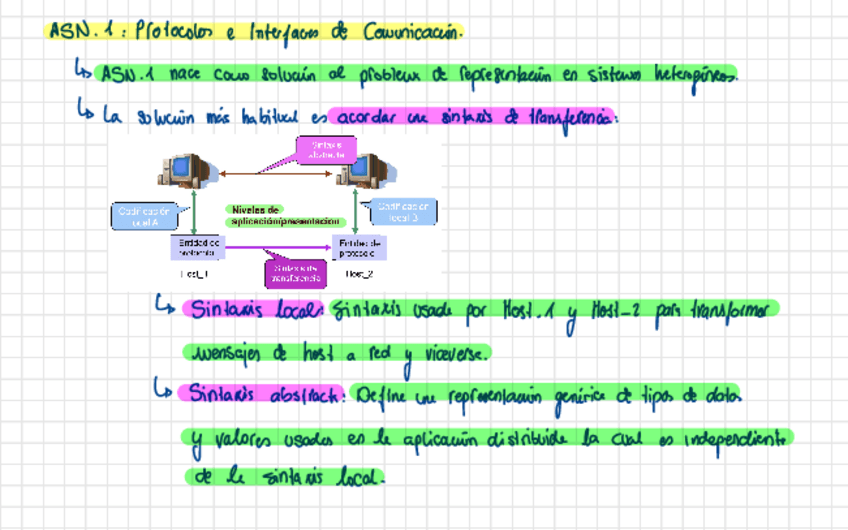 ASN.1: Protocolos e Interfaces de Comunicación.
↳ ASN.1 nace como solución al problema de representación en sistemas heterogéneos.
↳ La solución más habitual es acordar una sintaxis de transferencia:
Sintaxis
abstracta
Codificación
local A
Niveles de
aplicación/presentación
Codificación
local B
Entidad de
protocolo
Entidad de
protocolo
Sintaxis de
transferencia
Host_1
Host_2
↳ Sintaxis local: Sintaxis usada por Host_1 y Host_2 para transformar
mensajes de host a red y viceversa.
↳ Sintaxis abstracta: Define una representación genérica de tipos de datos
y valores usados en la aplicación distribuida la cual es independiente
de la sintaxis local.